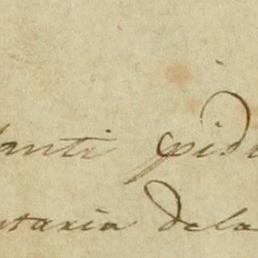 anti pid
taria dela